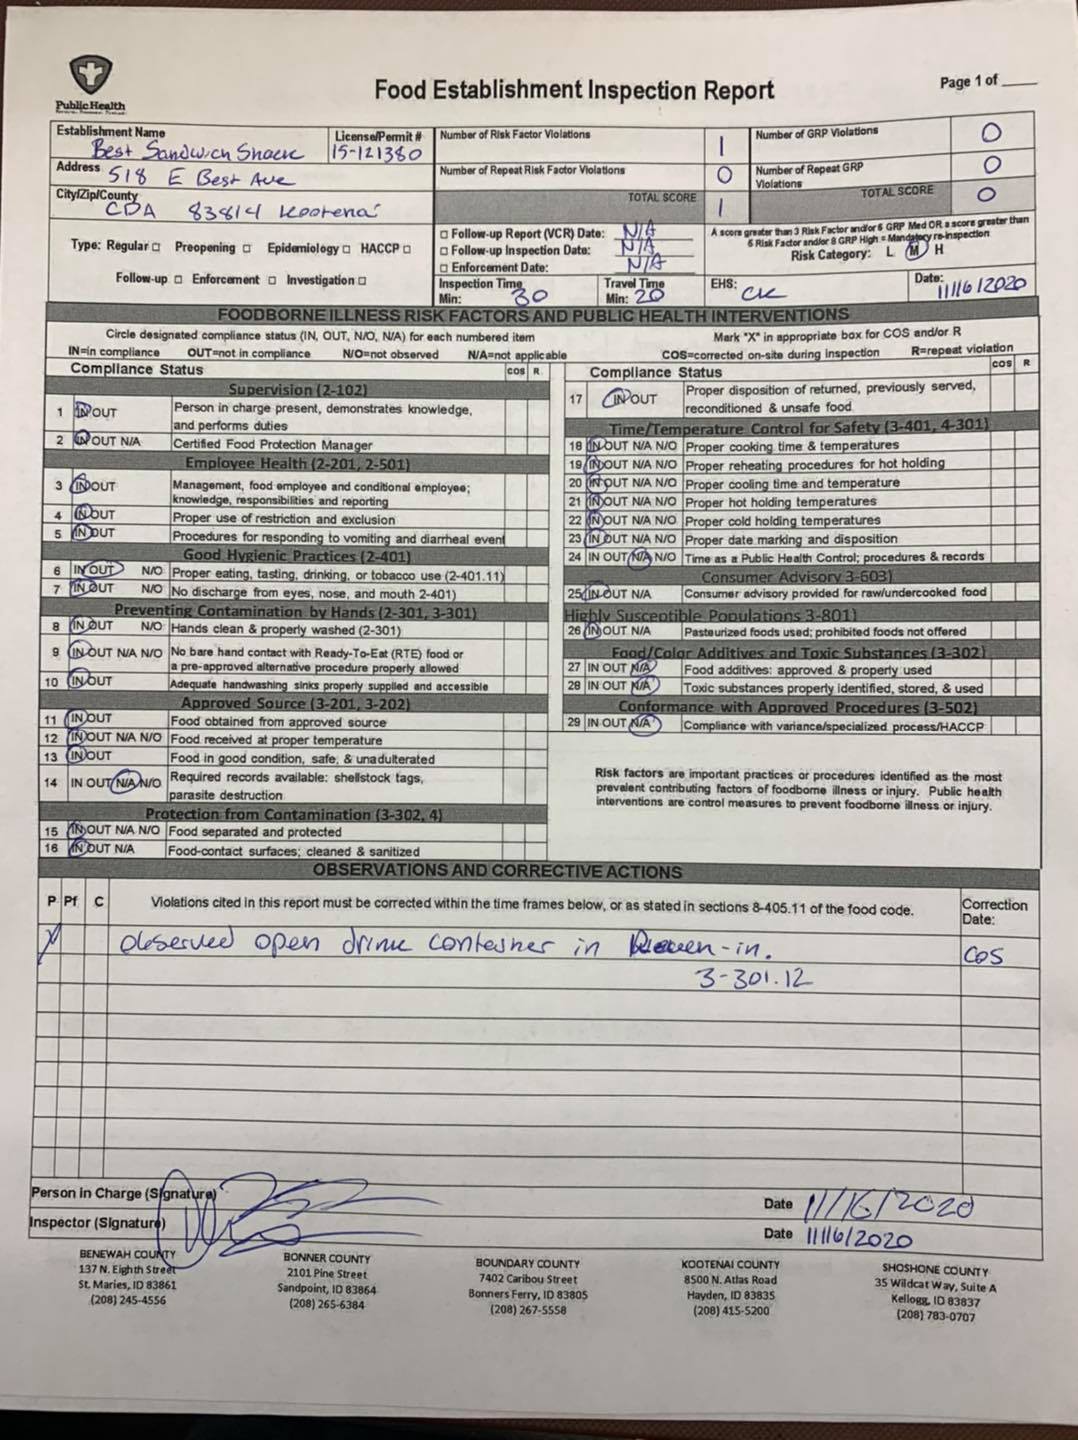 Public Health
Food Establishment Inspection Report
Page 1 of
Establishment Name
Best Sandwich Shack
License/Permit #
15-121380
Address 518 E Best Ave
City/Zip/County
CDA 83814 Kootenai
Number of Risk Factor Violations 1
Number of Repeat Risk Factor Violations 0
TOTAL SCORE 1
Number of GRP Violations 0
Number of Repeat GRP Violations 0
TOTAL SCORE 0
Type: Regular □ Preopening □ Epidemiology □ HACCP □
Follow-up □ Enforcement □ Investigation □
□ Follow-up Report (VCR) Date: N/A
□ Follow-up Inspection Date: N/A
□ Enforcement Date: N/A
A score greater than 3 Risk Factor and/or 6 GRP Med OR a score greater than
6 Risk Factor and/or 8 GRP High = Mandatory re-inspection
Risk Category: L M H
Inspection Time Min: 30
Travel Time Min: 20
EHS: CK
Date: 11/16/2020
FOODBORNE ILLNESS RISK FACTORS AND PUBLIC HEALTH INTERVENTIONS
Circle designated compliance status (IN, OUT, N/O, N/A) for each numbered item
Mark "X" in appropriate box for COS and/or R
IN=in compliance OUT=not in compliance N/O=not observed N/A=not applicable
COS=corrected on-site during inspection R=repeat violation
Compliance Status COS R
Supervision (2-102)
1 IN OUT Person in charge present, demonstrates knowledge,
and performs duties
2 IN OUT N/A Certified Food Protection Manager
Employee Health (2-201, 2-501)
3 IN OUT Management, food employee and conditional employee;
knowledge, responsibilities and reporting
4 IN OUT Proper use of restriction and exclusion
5 IN OUT Procedures for responding to vomiting and diarrheal event
Good Hygienic Practices (2-401)
6 IN OUT N/O Proper eating, tasting, drinking, or tobacco use (2-401.11)
7 IN OUT N/O No discharge from eyes, nose, and mouth 2-401)
Preventing Contamination by Hands (2-301, 3-301)
8 IN OUT N/O Hands clean & properly washed (2-301)
9 IN OUT N/A N/O No bare hand contact with Ready-To-Eat (RTE) food or
a pre-approved alternative procedure properly allowed
10 IN OUT Adequate handwashing sinks properly supplied and accessible
Approved Source (3-201, 3-202)
11 IN OUT Food obtained from approved source
12 IN OUT N/A N/O Food received at proper temperature
13 IN OUT Food in good condition, safe, & unadulterated
14 IN OUT N/A N/O Required records available: shellstock tags,
parasite destruction
Protection from Contamination (3-302, 4)
15 IN OUT N/A N/O Food separated and protected
16 IN OUT N/A Food-contact surfaces; cleaned & sanitized
Compliance Status COS R
17 IN OUT Proper disposition of returned, previously served,
reconditioned & unsafe food
Time/Temperature Control for Safety (3-401, 4-301)
18 IN OUT N/A N/O Proper cooking time & temperatures
19 IN OUT N/A N/O Proper reheating procedures for hot holding
20 IN OUT N/A N/O Proper cooling time and temperature
21 IN OUT N/A N/O Proper hot holding temperatures
22 IN OUT N/A N/O Proper cold holding temperatures
23 IN OUT N/A N/O Proper date marking and disposition
24 IN OUT N/A N/O Time as a Public Health Control; procedures & records
Consumer Advisory 3-603)
25 IN OUT N/A Consumer advisory provided for raw/undercooked food
Highly Susceptible Populations 3-801)
26 IN OUT N/A Pasteurized foods used; prohibited foods not offered
Food/Color Additives and Toxic Substances (3-302)
27 IN OUT N/A Food additives: approved & properly used
28 IN OUT N/A Toxic substances properly identified, stored, & used
Conformance with Approved Procedures (3-502)
29 IN OUT N/A Compliance with variance/specialized process/HACCP
Risk factors are important practices or procedures identified as the most
prevalent contributing factors of foodborne illness or injury. Public health
interventions are control measures to prevent foodborne illness or injury.
OBSERVATIONS AND CORRECTIVE ACTIONS
P Pf C Violations cited in this report must be corrected within the time frames below, or as stated in sections 8-405.11 of the food code. Correction Date:
X observed open drink container in -in. COS
3-301.12
Person in Charge (Signature) Date 11/16/2020
Inspector (Signature) Date 11/16/2020
BENEWAH COUNTY
137 N. Eighth Street
St. Maries, ID 83861
(208) 245-4556
BONNER COUNTY
2101 Pine Street
Sandpoint, ID 83864
(208) 265-6384
BOUNDARY COUNTY
7402 Caribou Street
Bonners Ferry, ID 83805
(208) 267-5558
KOOTENAI COUNTY
8500 N. Atlas Road
Hayden, ID 83835
(208) 415-5200
SHOSHONE COUNTY
35 Wildcat Way, Suite A
Kellogg, ID 83837
(208) 783-0707